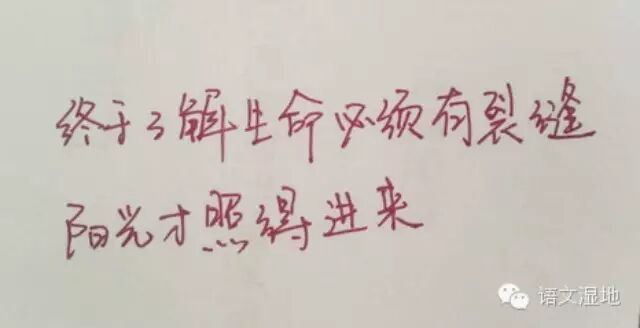 终于了解生命必须有裂缝
阳光才照得进来
语文湿地